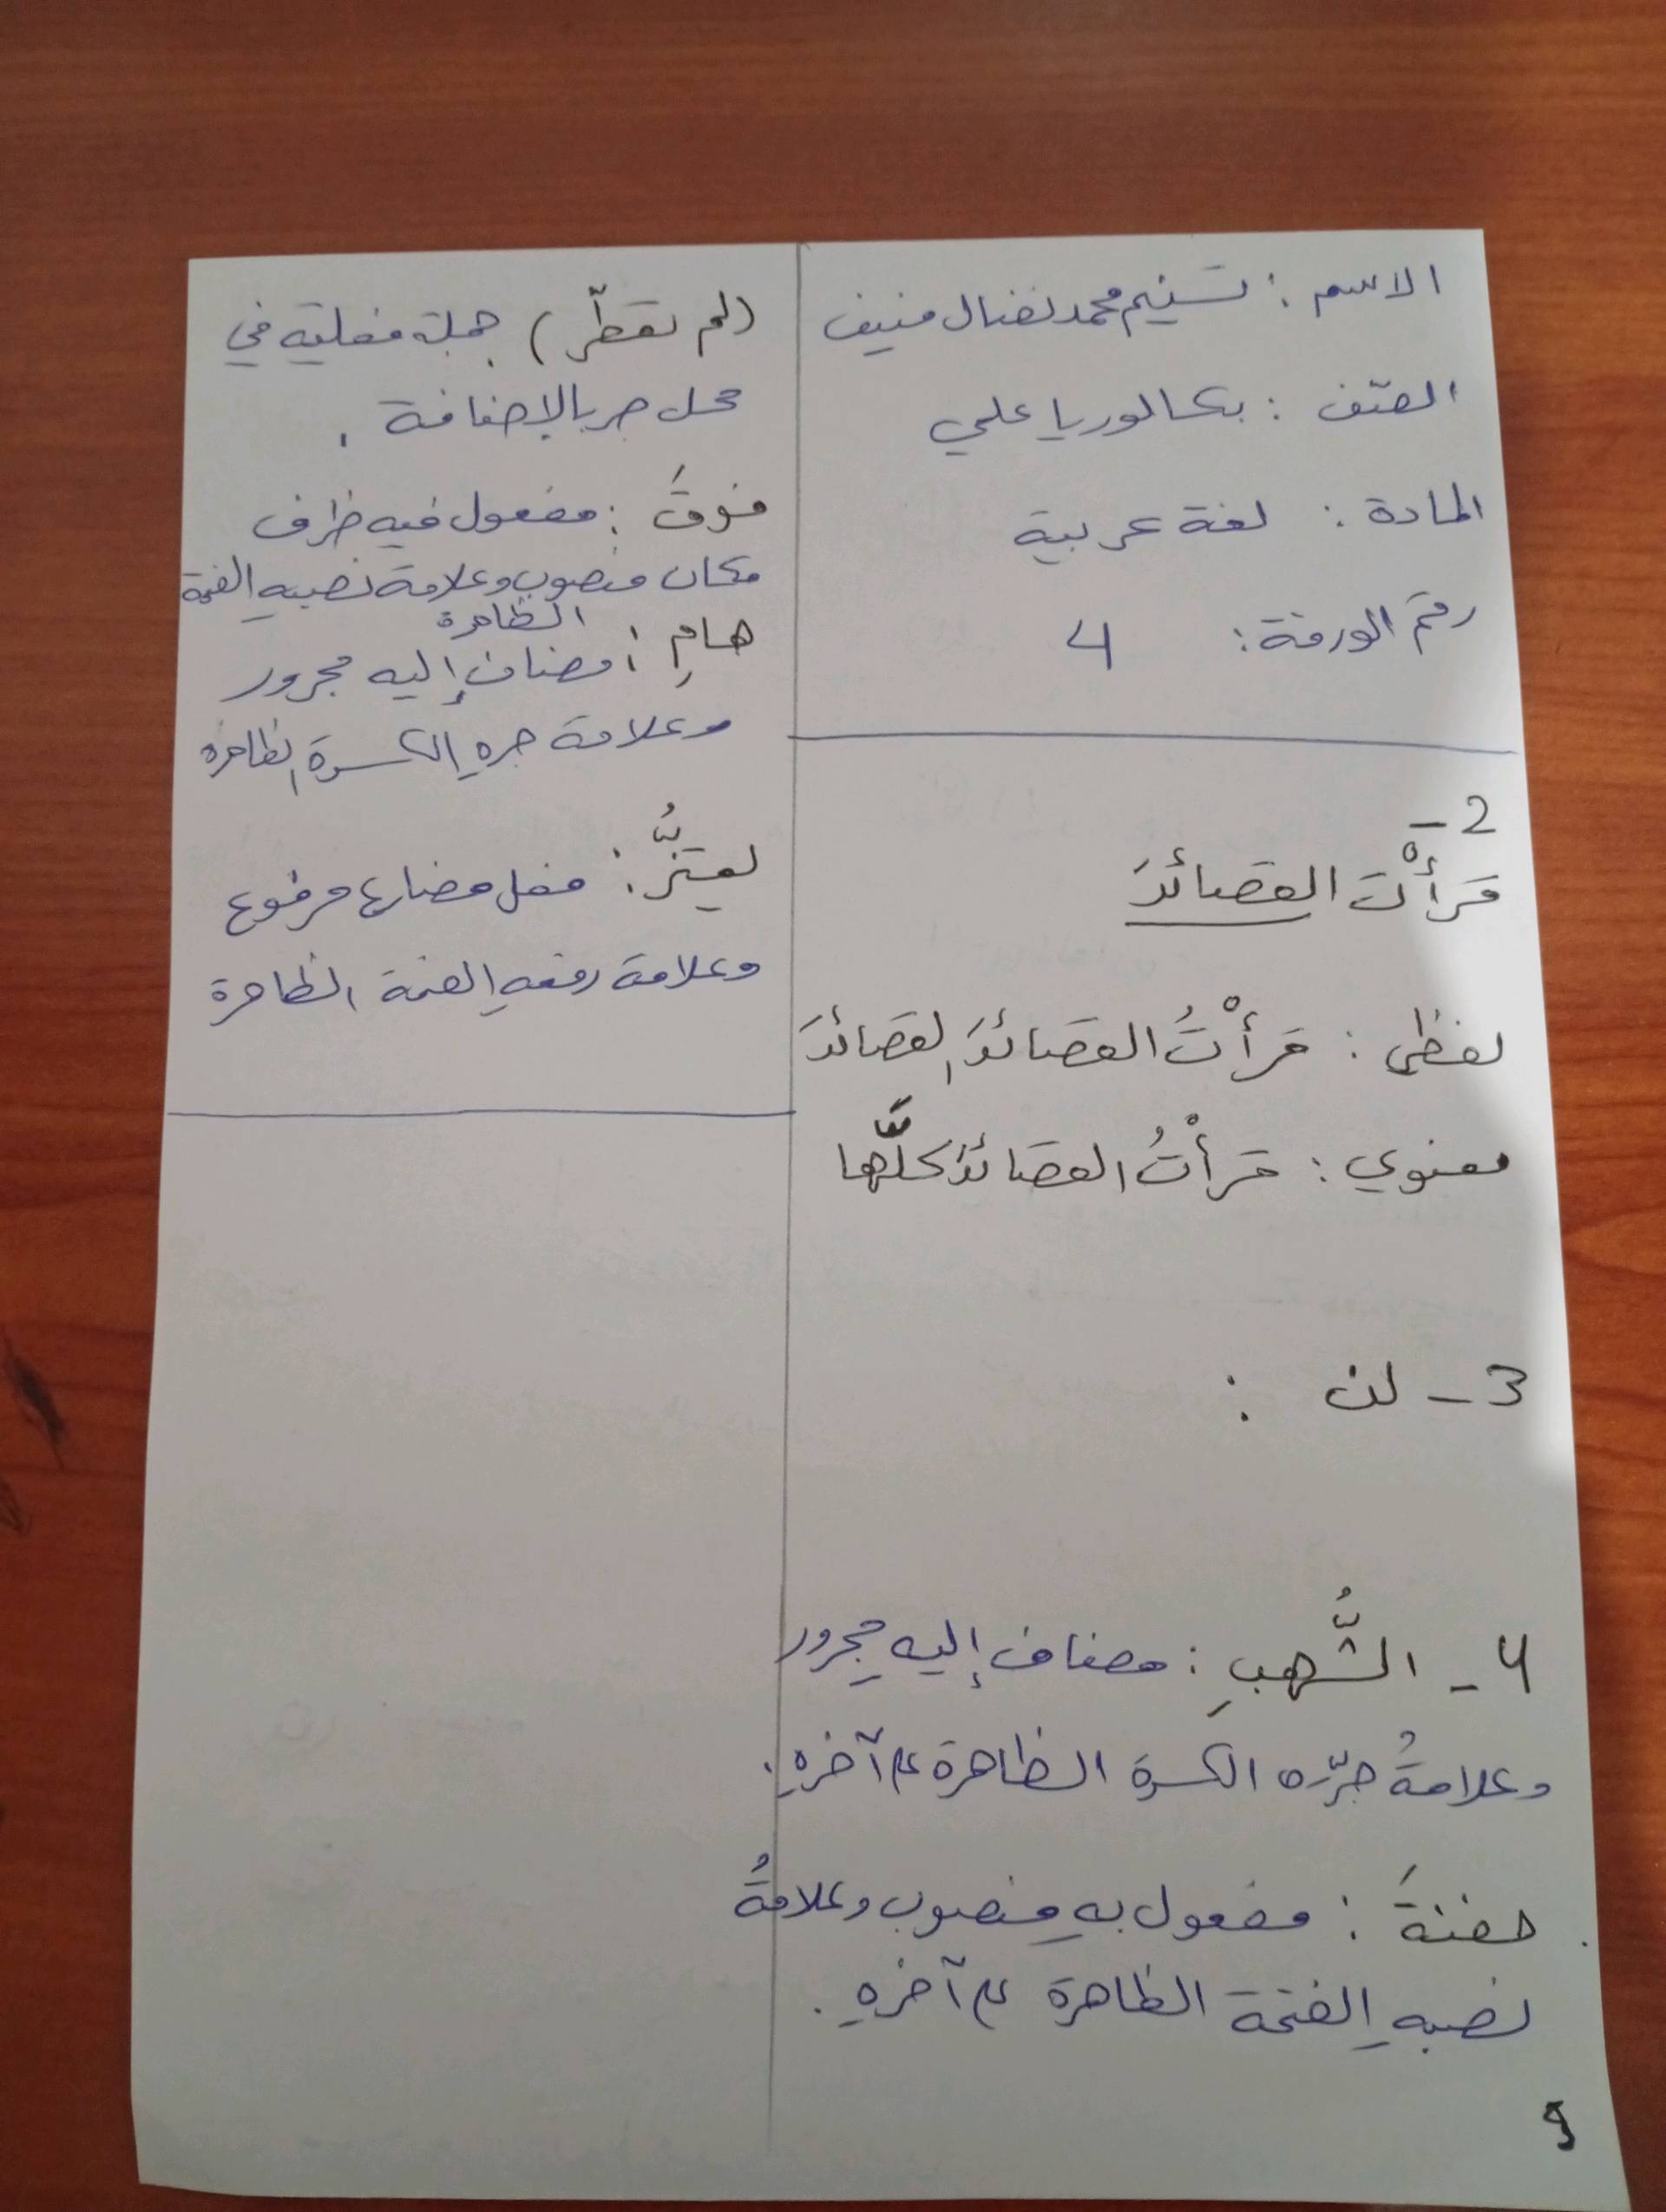 الاسم : تسنيم محمد نضال منيف
الصّف : بكالوريا علمي
المادة : لغة عربية
رقم الورقة : 4
2 –
قرأْت القصائدَ
لفظي : قرأْتُ القصائدَ القصائدَ
معنوي : قرأْتُ القصائدَ كلَّها
3 – لن :
4 – الشُّهبِ : مضاف إليه مجرور
وعلامةُ جرّه الكسرة الظاهرة على آخرهِ .
حفنةَ : مفعول بهِ منصوب وعلامةُ
نصبهِ الفتحة الظاهرة على آخرهِ .
(لم تقطّر) جملة فعلية في
محل جر بالإضافة .
فوقَ : مفعول فيه ظرف
مكان منصوب وعلامة نصبهِ الفتحة
الظاهرة
هامِ : مضاف إليه مجرور
وعلامة جرهِ الكسرة الظاهرة
يعتزُّ : فعل مضارع مرفوع
وعلامة رفعهِ الضمة الظاهرة